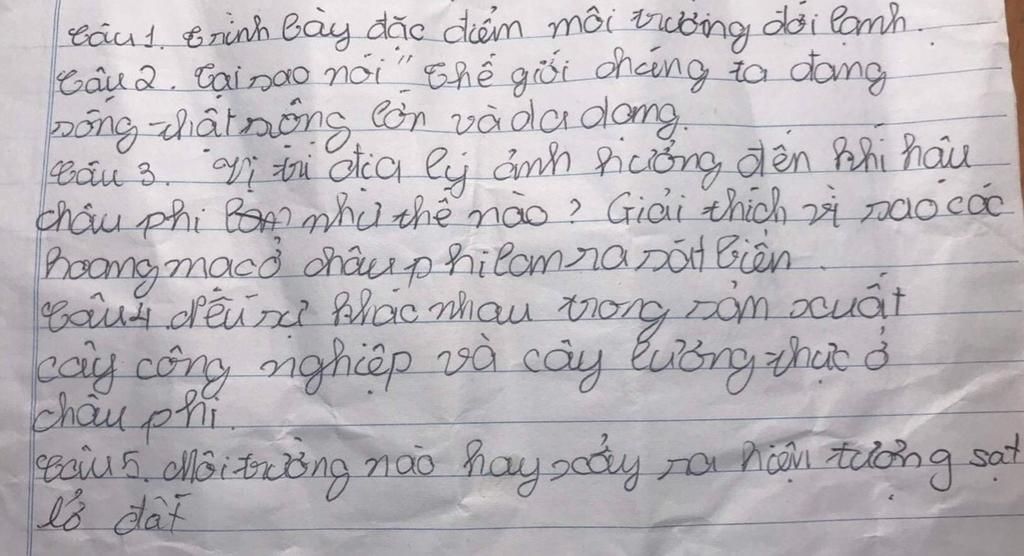 Câu 1. Trình bày đặc điểm môi trường đới lạnh.
Câu 2. Tại sao nói " Thế giới chúng ta đang
sống thật rộng lớn và đa dạng.
Câu 3. Vị trí địa lý ảnh hưởng đến khí hậu
châu phi như thế nào? Giải thích vì sao các
hoang mạc ở châu phi lan ra sát biển.
Câu 4. nêu sự khác nhau trong sản xuất
cây công nghiệp và cây lương thực ở
châu phi.
Câu 5. Môi trường nào hay xảy ra hiện tượng sạt
lở đất